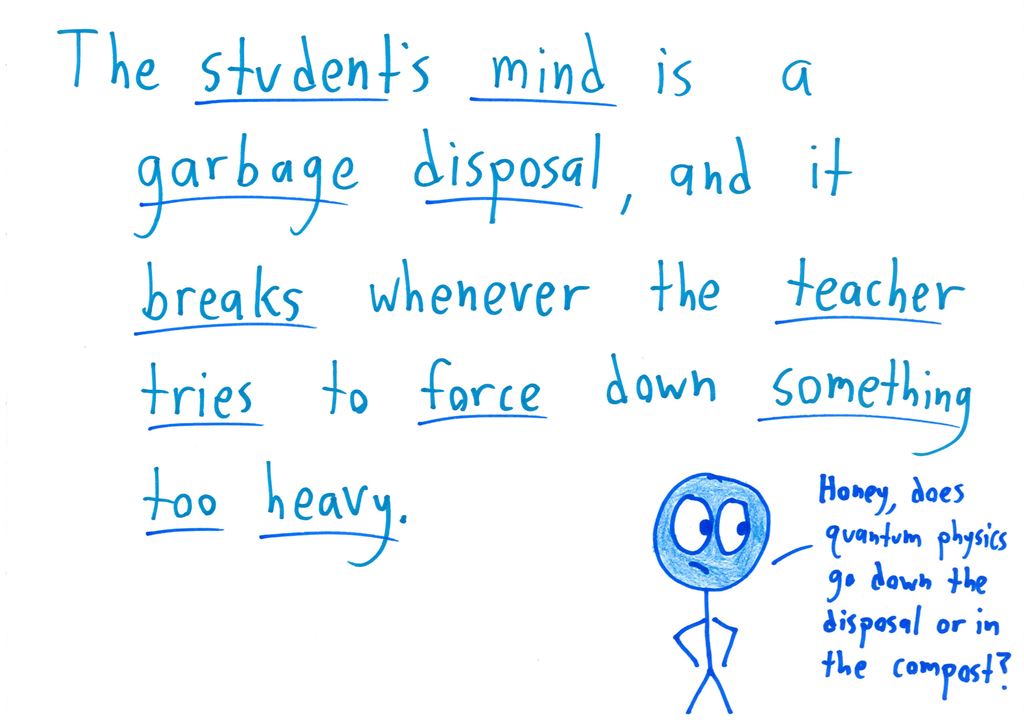 The student's mind is a
garbage disposal, and it
breaks whenever the teacher
tries to force down something
too heavy.
Honey, does
quantum physics
go down the
disposal or in
the compost?